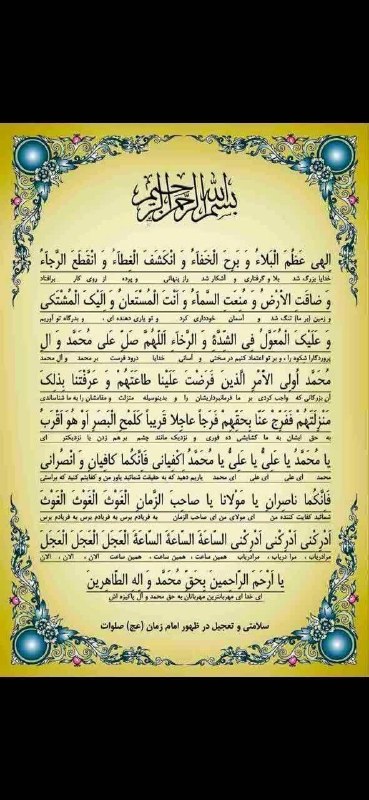 بسم الله الرحمن الرحیم
الهی عَظُمَ الْبَلاءُ وَ بَرِحَ الْخَفآءُ وَ انْکَشَفَ الْغِطاءُ وَ انْقَطَعَ الرَّجآءُ
خدایا بزرگ شد بلا و گرفتاری و آشکار شد راز پنهانی و پرده از روی کار برافتاد
وَ ضاقَتِ الاَْرْضُ وَ مُنِعَتِ السَّمآءُ وَ اَنْتَ الْمُسْتَعانُ وَ اِلَیْکَ الْمُشْتَکی
و زمین (بر ما) تنگ شد و آسمان خودداری کرد و تو یاری دهنده ای ، و بدرگاه تو آوریم
وَ عَلَیْکَ الْمُعَوَّلُ فِی الشِّدَّهِ وَ الرَّخاءِ اَللّهُمَّ صَلِّ عَلی مُحَمَّدٍ وَ الِ
پروردگارا شکوه را، و بر تو اعتماد کنیم در سختی و آسانی خدایا درود فرست بر محمد و آل محمد
مُحَمَّدٍ اُولِی الاَْمْرِ الَّذینَ فَرَضْتَ عَلَیْنا طاعَتَهُمْ وَ عَرَّفْتَنا بِذلِکَ
آن بزرگانی که واجب کردی بر ما فرمانبرداریشان را و بدینوسیله منزلت و مقامشان را به ما شناساندی
مَنْزِلَتَهُمْ فَفَرِّجْ عَنّا بِحَقِّهِمْ فَرَجاً عاجِلا قَریباً کَلَمْحِ الْبَصَرِ اَوْ هُوَ اَقْرَبُ
به حق ایشان به ما گشایشی ده فوری و نزدیک مانند چشم بر هم زدن یا نزدیکتر ای
یا مُحَمَّدُ یا عَلِیُّ یا عَلِیُّ یا مُحَمَّدُ اِکْفِیانی فَاِنَّکُما کافِیانِ وَ انْصُرانی
محمد ای علی ای علی ای محمد یاریم دهید که به حقیقت شمائید یاور من و کفایتم کنید که براستی
فَاِنَّکُما ناصِرانِ یا مَوْلانا یا صاحِبَ الزَّمانِ الْغَوْثَ الْغَوْثَ الْغَوْثَ
شمائید کفایت کننده من ای مولای من ای صاحب الزمان به فریادم برس به فریادم برس به فریادم برس
اَدْرِکْنی اَدْرِکْنی اَدْرِکْنی السّاعَهَ السّاعَهَ السّاعَهَ الْعَجَلَ الْعَجَلَ الْعَجَلَ
مرادریاب ، مرا دریاب ، مرادریاب همین ساعت ، همین ساعت ، همین ساعت الان ، الان ، الان
یا اَرْحَمَ الرّاحِمینَ بِحَقِّ مُحَمَّدٍ وَ الِهِ الطّاهِرینَ
ای خدا ای مهربانترین مهربانان به حق محمد و آل پاکیزه اش
سلامتی و تعجیل در ظهور امام زمان (عج) صلوات